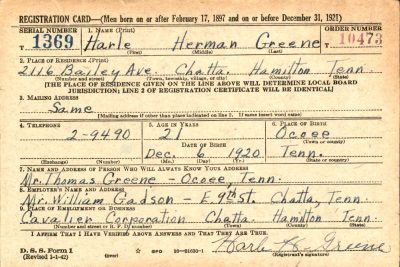 REGISTRATION CARD—(Men born on or after February 17, 1897 and on or before December 31, 1921)
SERIAL NUMBER 1. NAME (Print) ORDER NUMBER
T 1369 Harle Herman Greene 10473
(First) (Middle) (Last)
2. PLACE OF RESIDENCE (Print)
2116 Bailey Ave. Chatta. Hamilton Tenn.
(Number and street) (Town, township, village, or city) (County) (State)
[THE PLACE OF RESIDENCE GIVEN ON THE LINE ABOVE WILL DETERMINE LOCAL BOARD
JURISDICTION; LINE 2 OF REGISTRATION CERTIFICATE WILL BE IDENTICAL]
3. MAILING ADDRESS
Same
[Mailing address if other than place indicated on line 2. If same insert word same]
4. TELEPHONE 5. AGE IN YEARS 6. PLACE OF BIRTH
2-9490 21 Ocoee
DATE OF BIRTH (Town or county)
Dec. 6 1920 Tenn.
(Exchange) (Number) (Mo.) (Day) (Yr.) (State or country)
7. NAME AND ADDRESS OF PERSON WHO WILL ALWAYS KNOW YOUR ADDRESS
Mr. Thomas Greene - Ocoee, Tenn.
8. EMPLOYER'S NAME AND ADDRESS
Mr. William Gadson - E. 9th St. Chatta, Tenn.
9. PLACE OF EMPLOYMENT OR BUSINESS
Cavalier Corporation Chatta. Hamilton Tenn.
(Number and street or R. F. D. number) (Town) (County) (State)
I AFFIRM THAT I HAVE VERIFIED ABOVE ANSWERS AND THAT THEY ARE TRUE.
D. S. S. Form 1 GPO 16—21630-1 Harle H. Greene
(Revised 1-1-42) (over) (Registrant's signature)